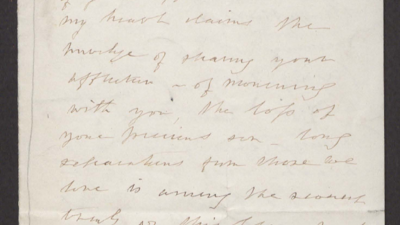 my heart claims the
privilege of sharing your
affliction - of mourning
with you, the loss of
your precious son - long
separations from those we
love is among the severest